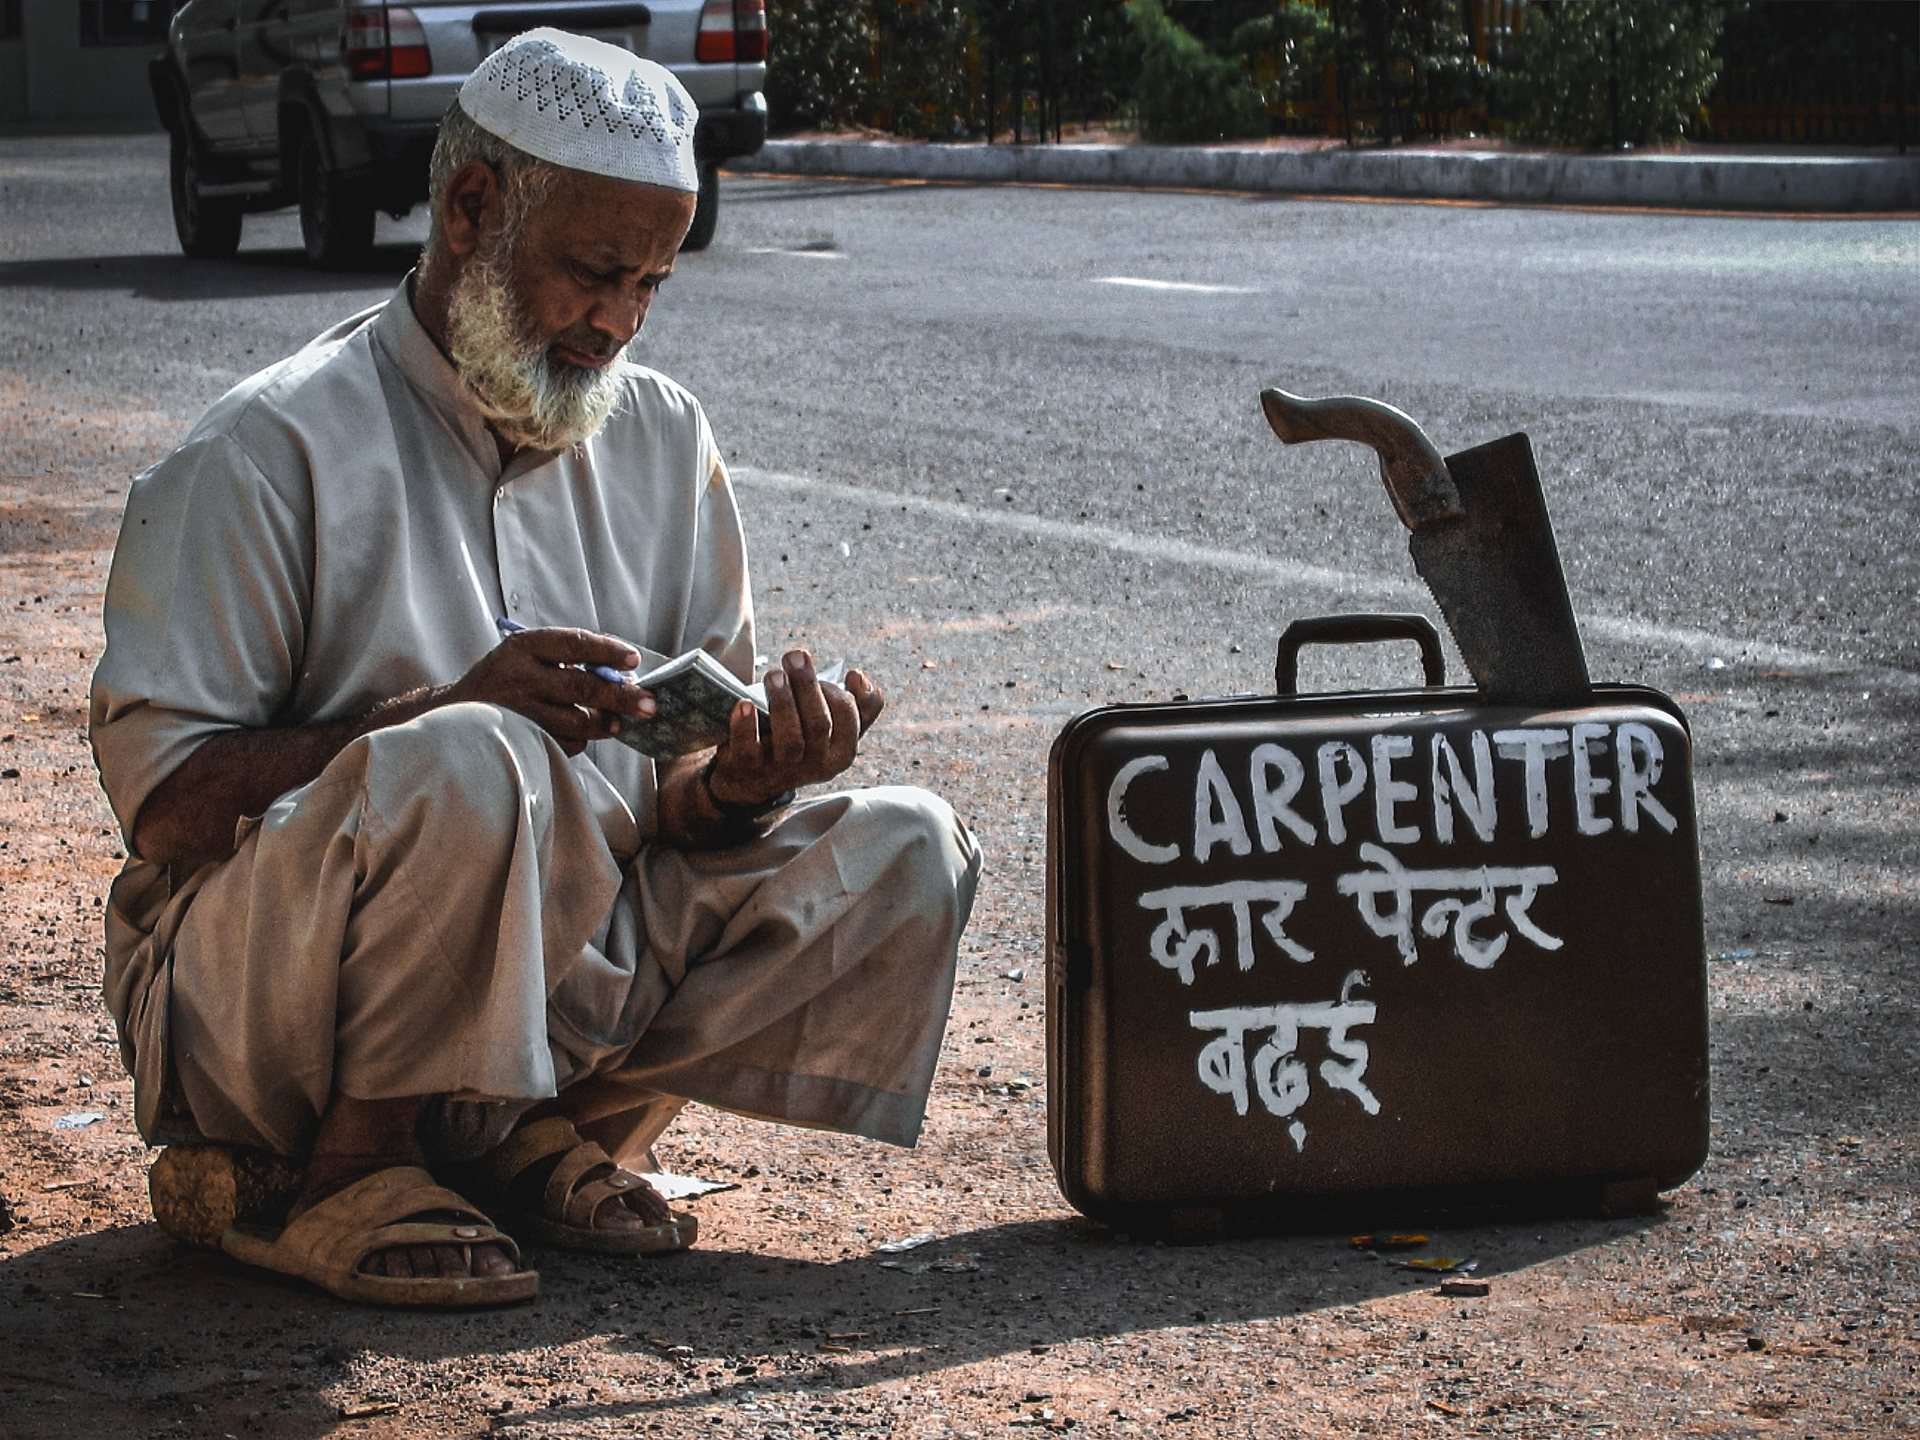 CARPENTER
कार पेन्टर
बढ़ई